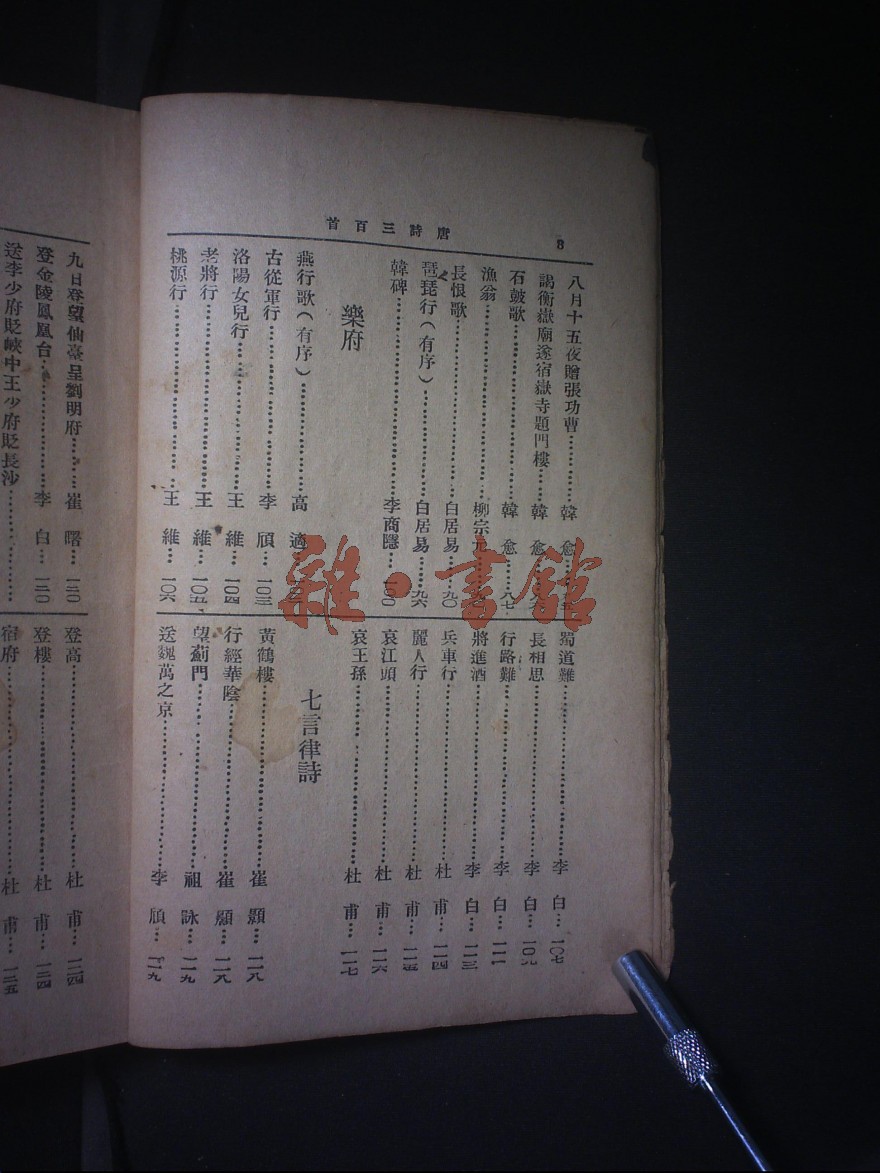 唐詩三百首
8
八月十五夜贈張功曹 韓愈
謁衡嶽廟遂宿嶽寺題門樓 韓愈
石皷歌 韓愈 八七
漁翁 柳宗元
長恨歌 白居易 九〇
琵琶行（有序） 白居易 九六
韓碑 李商隱 一〇〇
樂府
燕行歌（有序） 高適
古從軍行 李頎 一〇三
洛陽女兒行 王維 一〇四
老將行 王維 一〇五
桃源行 王維 一〇六
蜀道難 李白 一〇七
長相思 李白 一〇九
行路難 李白 一一一
將進酒 李白 一一三
兵車行 杜甫 一一四
麗人行 杜甫 一一五
哀江頭 杜甫 一一六
哀王孫 杜甫 一一七
七言律詩
黃鶴樓 崔顥 一一八
行經華陰 崔顥 一一八
望薊門 祖詠 一一九
送魏萬之京 李頎 一一九
九日登望仙臺呈劉明府 崔曙 一二〇
登金陵鳳凰台 李白 一二〇
送李少府貶峽中王少府貶長沙
登高 杜甫 一二四
登樓 杜甫 一二四
宿府 杜甫 一二五
雜·書館